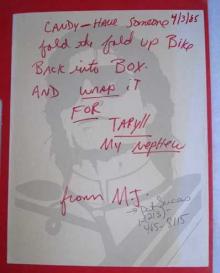 CANDY – HAVE Someone 4/3/85
fold the fold up Bike
BACK into BOX.
AND wrap it
FOR
TARyll
My nephew
from MJ.
→ Pat Lucas
(213)
465-8115